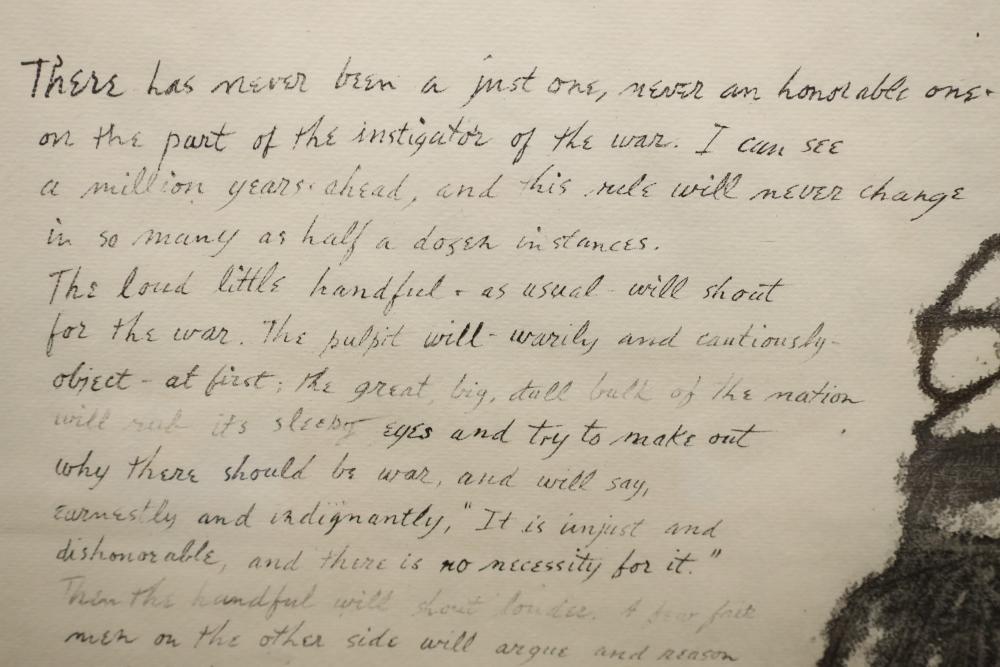 There has never been a just one, never an honorable one-
on the part of the instigator of the war. I can see
a million years ahead, and this rule will never change
in so many as half a dozen instances.
The loud little handful - as usual - will shout
for the war. The pulpit will - warily and cautiously -
object - at first; the great, big, dull bulk of the nation
will rub its sleepy eyes and try to make out
why there should be war, and will say,
earnestly and indignantly, "It is unjust and
dishonorable, and there is no necessity for it."
Then the handful will shout louder. A few fair
men on the other side will argue and reason